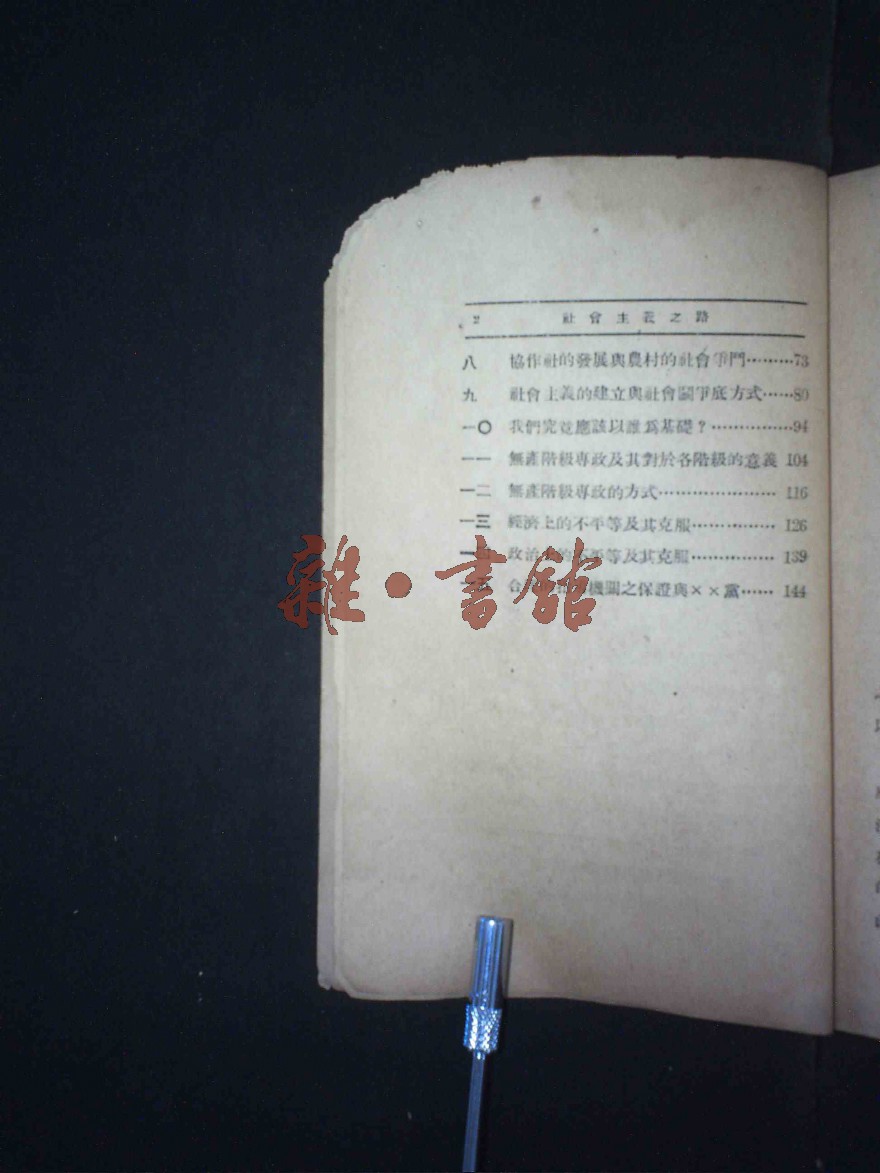 2 社會主義之路
八 協作社的發展與農村的社會爭鬥………73
九 社會主義的建立與社會鬭爭底方式……80
一〇 我們究竟應該以誰爲基礎？……………94
一一 無產階級專政及其對於各階級的意義 104
一二 無產階級專政的方式………………… 116
一三 經濟上的不平等及其克服…………… 126
一四 政治上的不平等及其克服…………… 139
一五 機關之保證與××黨…… 144
雜·書館